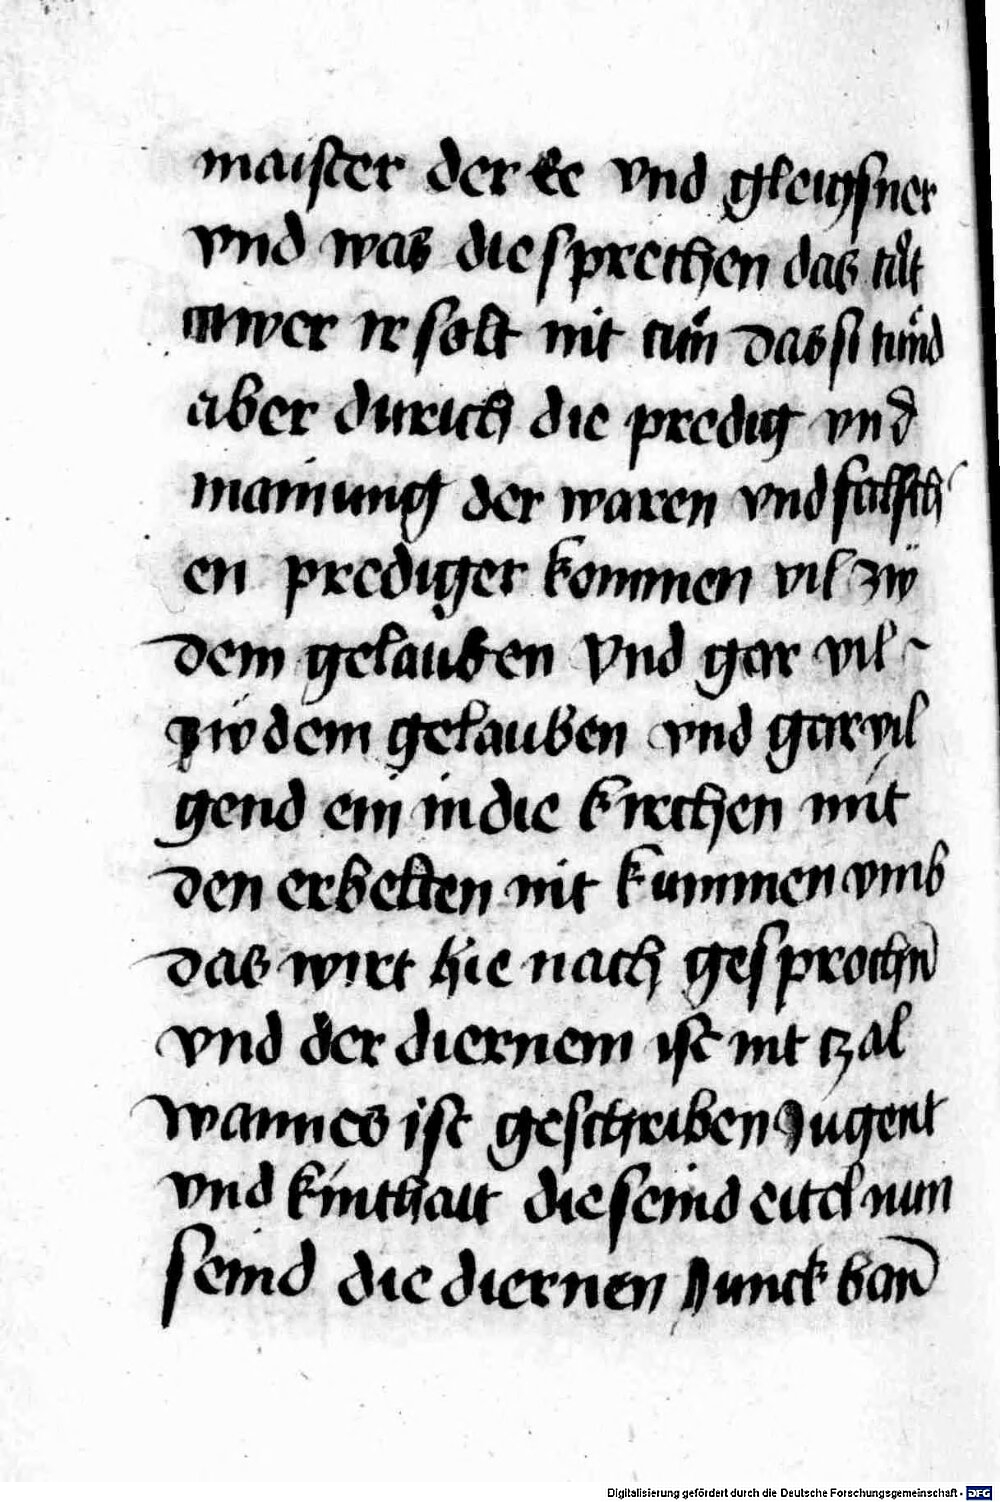 maister der Ee vnd gleiysner
vnd was die sprechen das tůt
awer ir solt nit tůn das si tůnd
aber durich die predig vnd
mainung der waren vnd falsch
en prediger kommen vil zw̎
dem gelauben vnd gar vil
zw̎ dem gelauben vnd gar vil
gend ein in die kirchen mit
den erbelten nit kummen vmb
das wirt hie nach gesprochn̄
vnd der diernem ist nit tzal
wann es ist geschriben Jugent
vnd kinthait die seind eitel nun
seind die diernen Junck ban̄
Digitalisierung gefördert durch die Deutsche Forschungsgemeinschaft - DFG